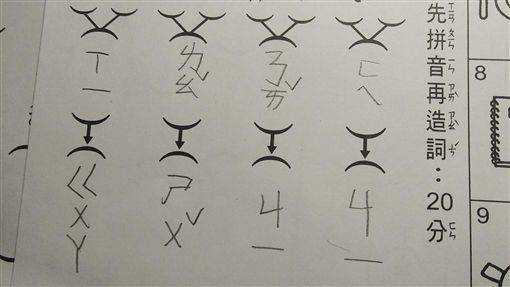 8
9
先拼音再造詞：20分
ㄈㄟ
ㄐㄧ
ㄋㄞˇ
ㄐㄧ
ㄌㄠˇ
ㄕㄨˇ
ㄒㄧ
ㄍㄨㄚ